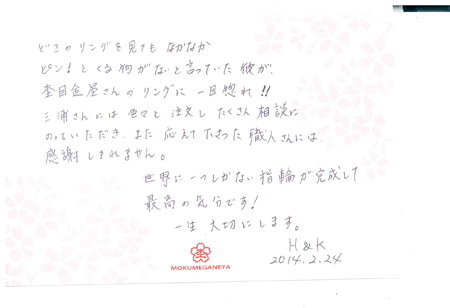 どこのリングを見てもなかなか
ピン!とくる物がないと言っていた彼が、
杢目金屋さんのリングに一目惚れ!!
三浦さんには色々と注文したくさん相談に
のっていただき、また応えて下さった職人さんには
感謝しきれません。
世界に一つしかない指輪が完成して
最高の気分です!
一生大切にします。
H&K
2014.2.24
MOKUMEGANEYA